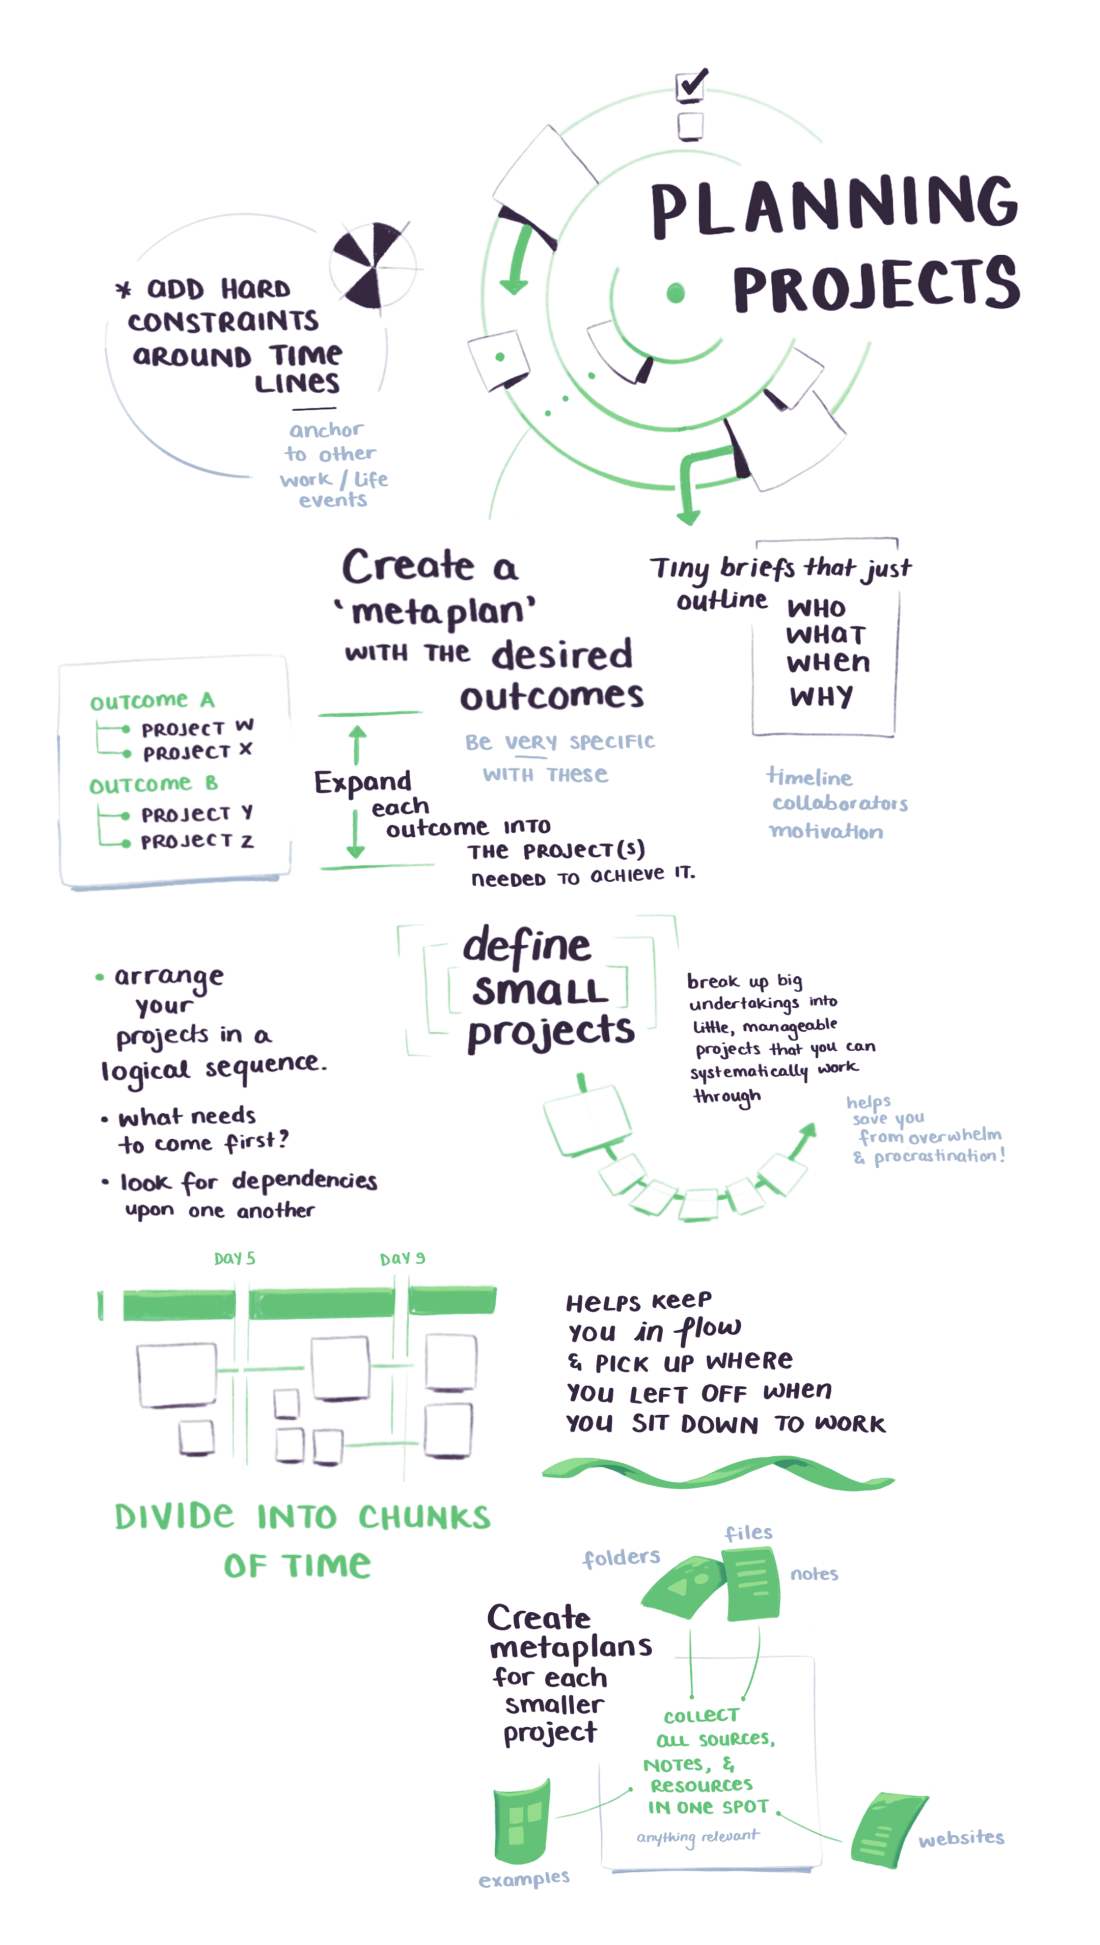 PLANNING
PROJECTS
* ADD HARD
CONSTRAINTS
AROUND TIME
LINES
anchor
to other
work / life
events
Create a
'metaplan'
WITH THE desired
outcomes
Be VERY SPECIFIC
WITH THESE
Tiny briefs that just
outline WHO
WHAT
WHEN
WHY
timeline
collaborators
motivation
OUTCOME A
PROJECT W
PROJECT X
OUTCOME B
PROJECT Y
PROJECT Z
Expand
each
outcome INTO
THE PROJECT(S)
NEEDED TO ACHIEVE IT.
define
SMALL
projects
break up big
undertakings into
little, manageable
projects that you can
systematically work
through
helps
save you
from overwhelm
& procrastination!
• arrange
your
projects in a
logical sequence.
• what needs
to come first?
• look for dependencies
upon one another
DAY 5 DAY 9
DIVIDE INTO CHUNKS
OF TIME
HELPS KEEP
YOU in flow
& PICK UP WHERE
YOU LEFT OFF WHEN
YOU SIT DOWN TO WORK
folders
files
notes
Create
metaplans
for each
smaller
project
COLLECT
ALL SOURCES,
NOTES, &
RESOURCES
IN ONE SPOT
anything relevant
examples
websites